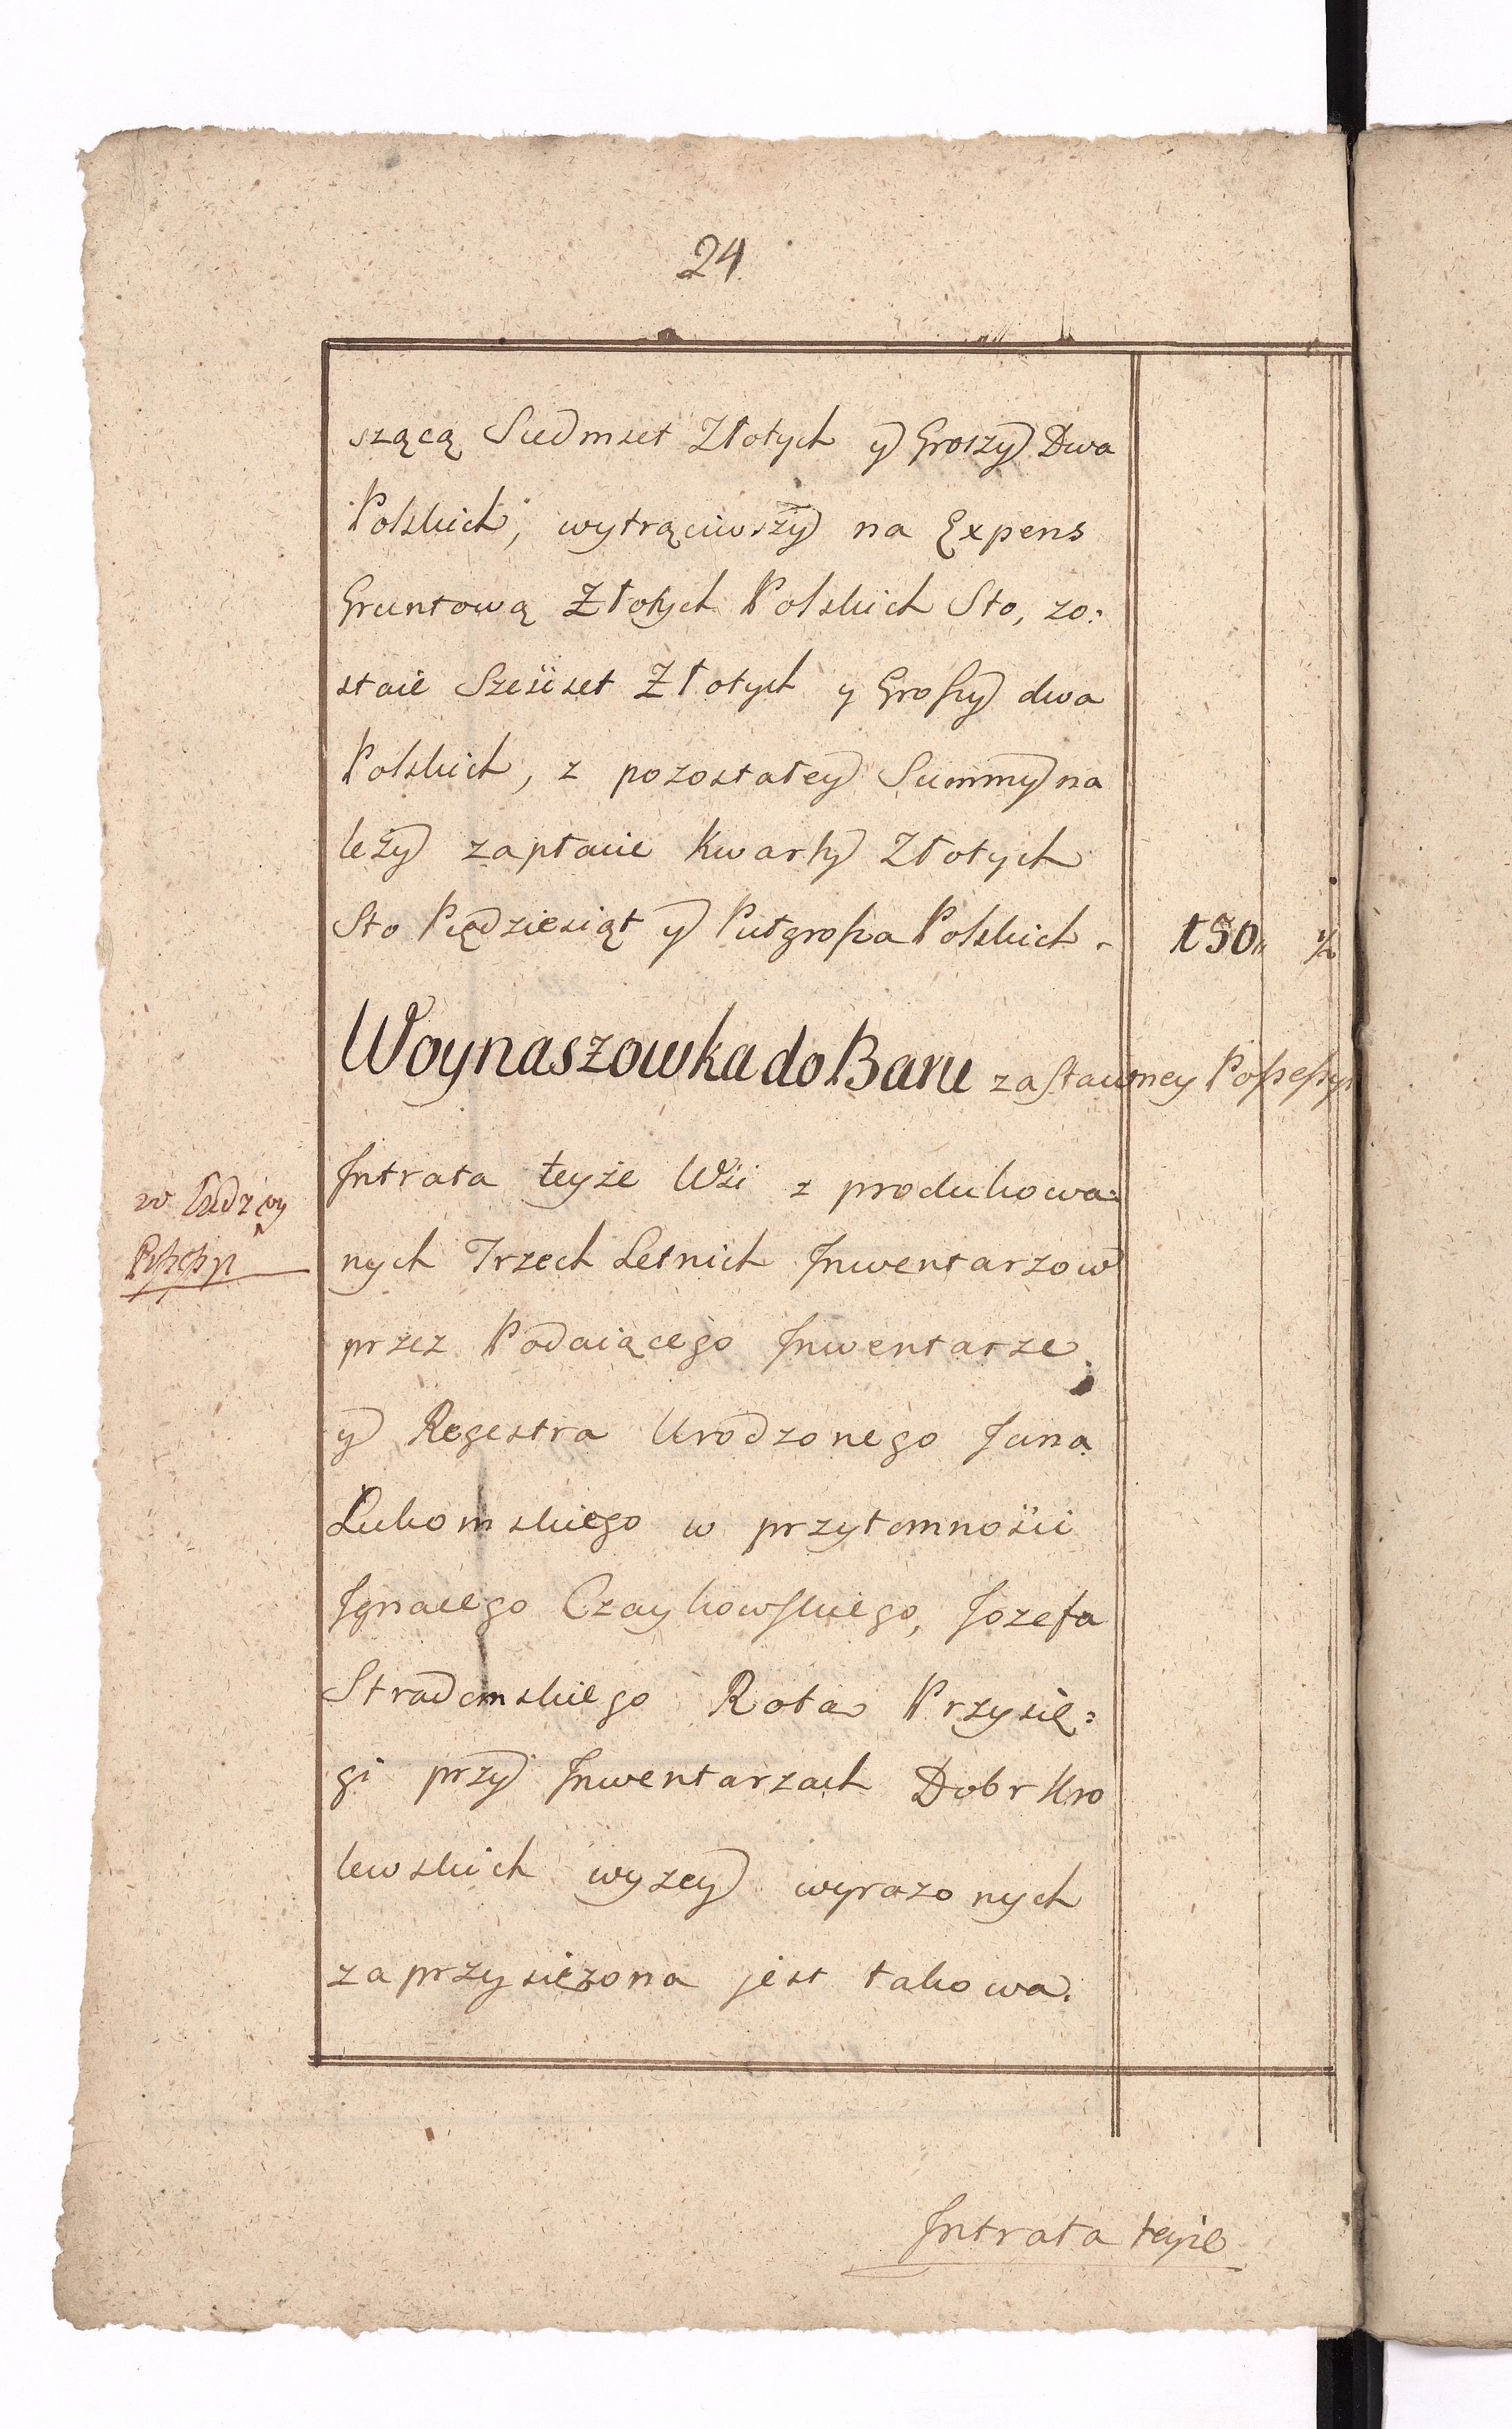 24
szącą Siedmset Złotych y Groszy Dwa
Polskich, wytrąciwszy na Expens
Gruntową Złotych Polskich Sto, zo:
staie Sześćset Złotych y Groszy dwa
Polskich, z pozostałey Summy na
leży zapłacie kwarty Złotych
Sto Piędziesiąt y Pułgrosza Polskich. 150,, ½
Woynaszowka do Baru zastawney Possessyi
Intrata teyże Wsi z produkowa:
w
Possessyi
nych Trzech Letnich Inwentarzow
przez Podaiącego Inwentarze
y Regestra Urodzonego Jana
Lukomskiego w przytomności
Ignacego Czaykowskiego, Jozefa
Strademskiego Rota Przysię:
gi przy Inwentarzach Dobr Kro
lewskich wyzey wyrazonych
zaprzysiężona jest takowa.
Intrata teyże